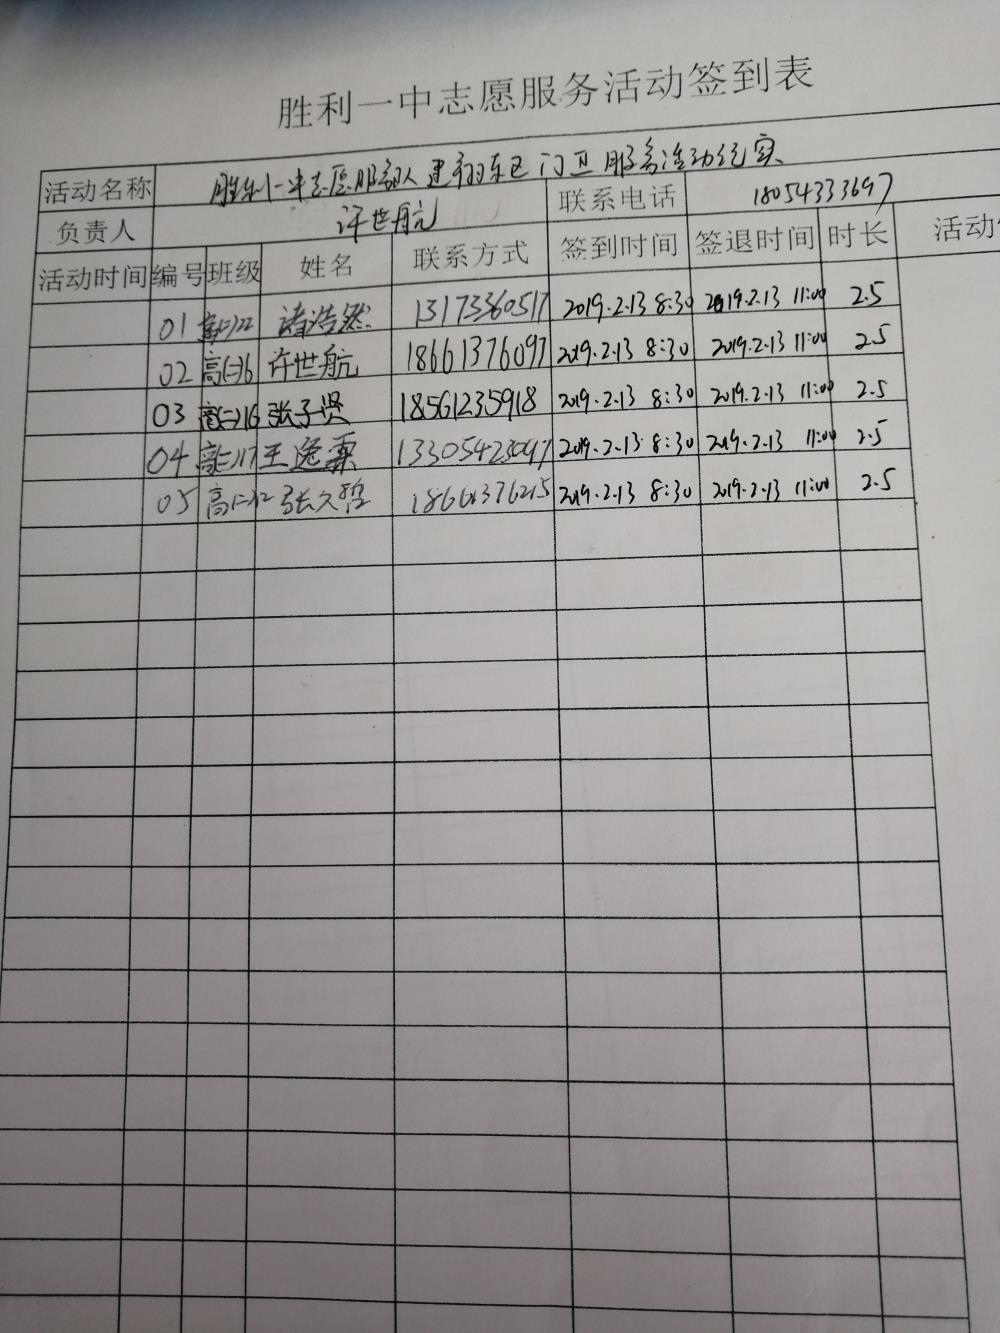 胜利一中志愿服务活动签到表
活动名称 胜利一中志愿服务队 建翔东区门卫服务活动纪实
负责人 许世航 联系电话 18054333697
活动时间 编号 班级 姓名 联系方式 签到时间 签退时间 时长 活动
01 高(二)22 浩然 13173360517 2019.2.13 8:30 2019.2.13 11:00 2.5
02 高(二)16 许世航 18661376097 2019.2.13 8:30 2019.2.13 11:00 2.5
03 高(二)16 张子贤 18561235918 2019.2.13 8:30 2019.2.13 11:00 2.5
04 高(二)17 王逸 13305423097 2019.2.13 8:30 2019.2.13 11:00 2.5
05 张久哲 18661376215 2019.2.13 8:30 2019.2.13 11:00 2.5